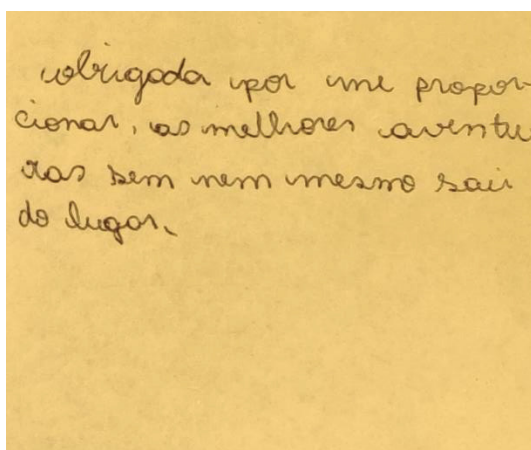 obrigada por me propor-
cionar, as melhores aventu
ras sem nem mesmo sair
do lugar.